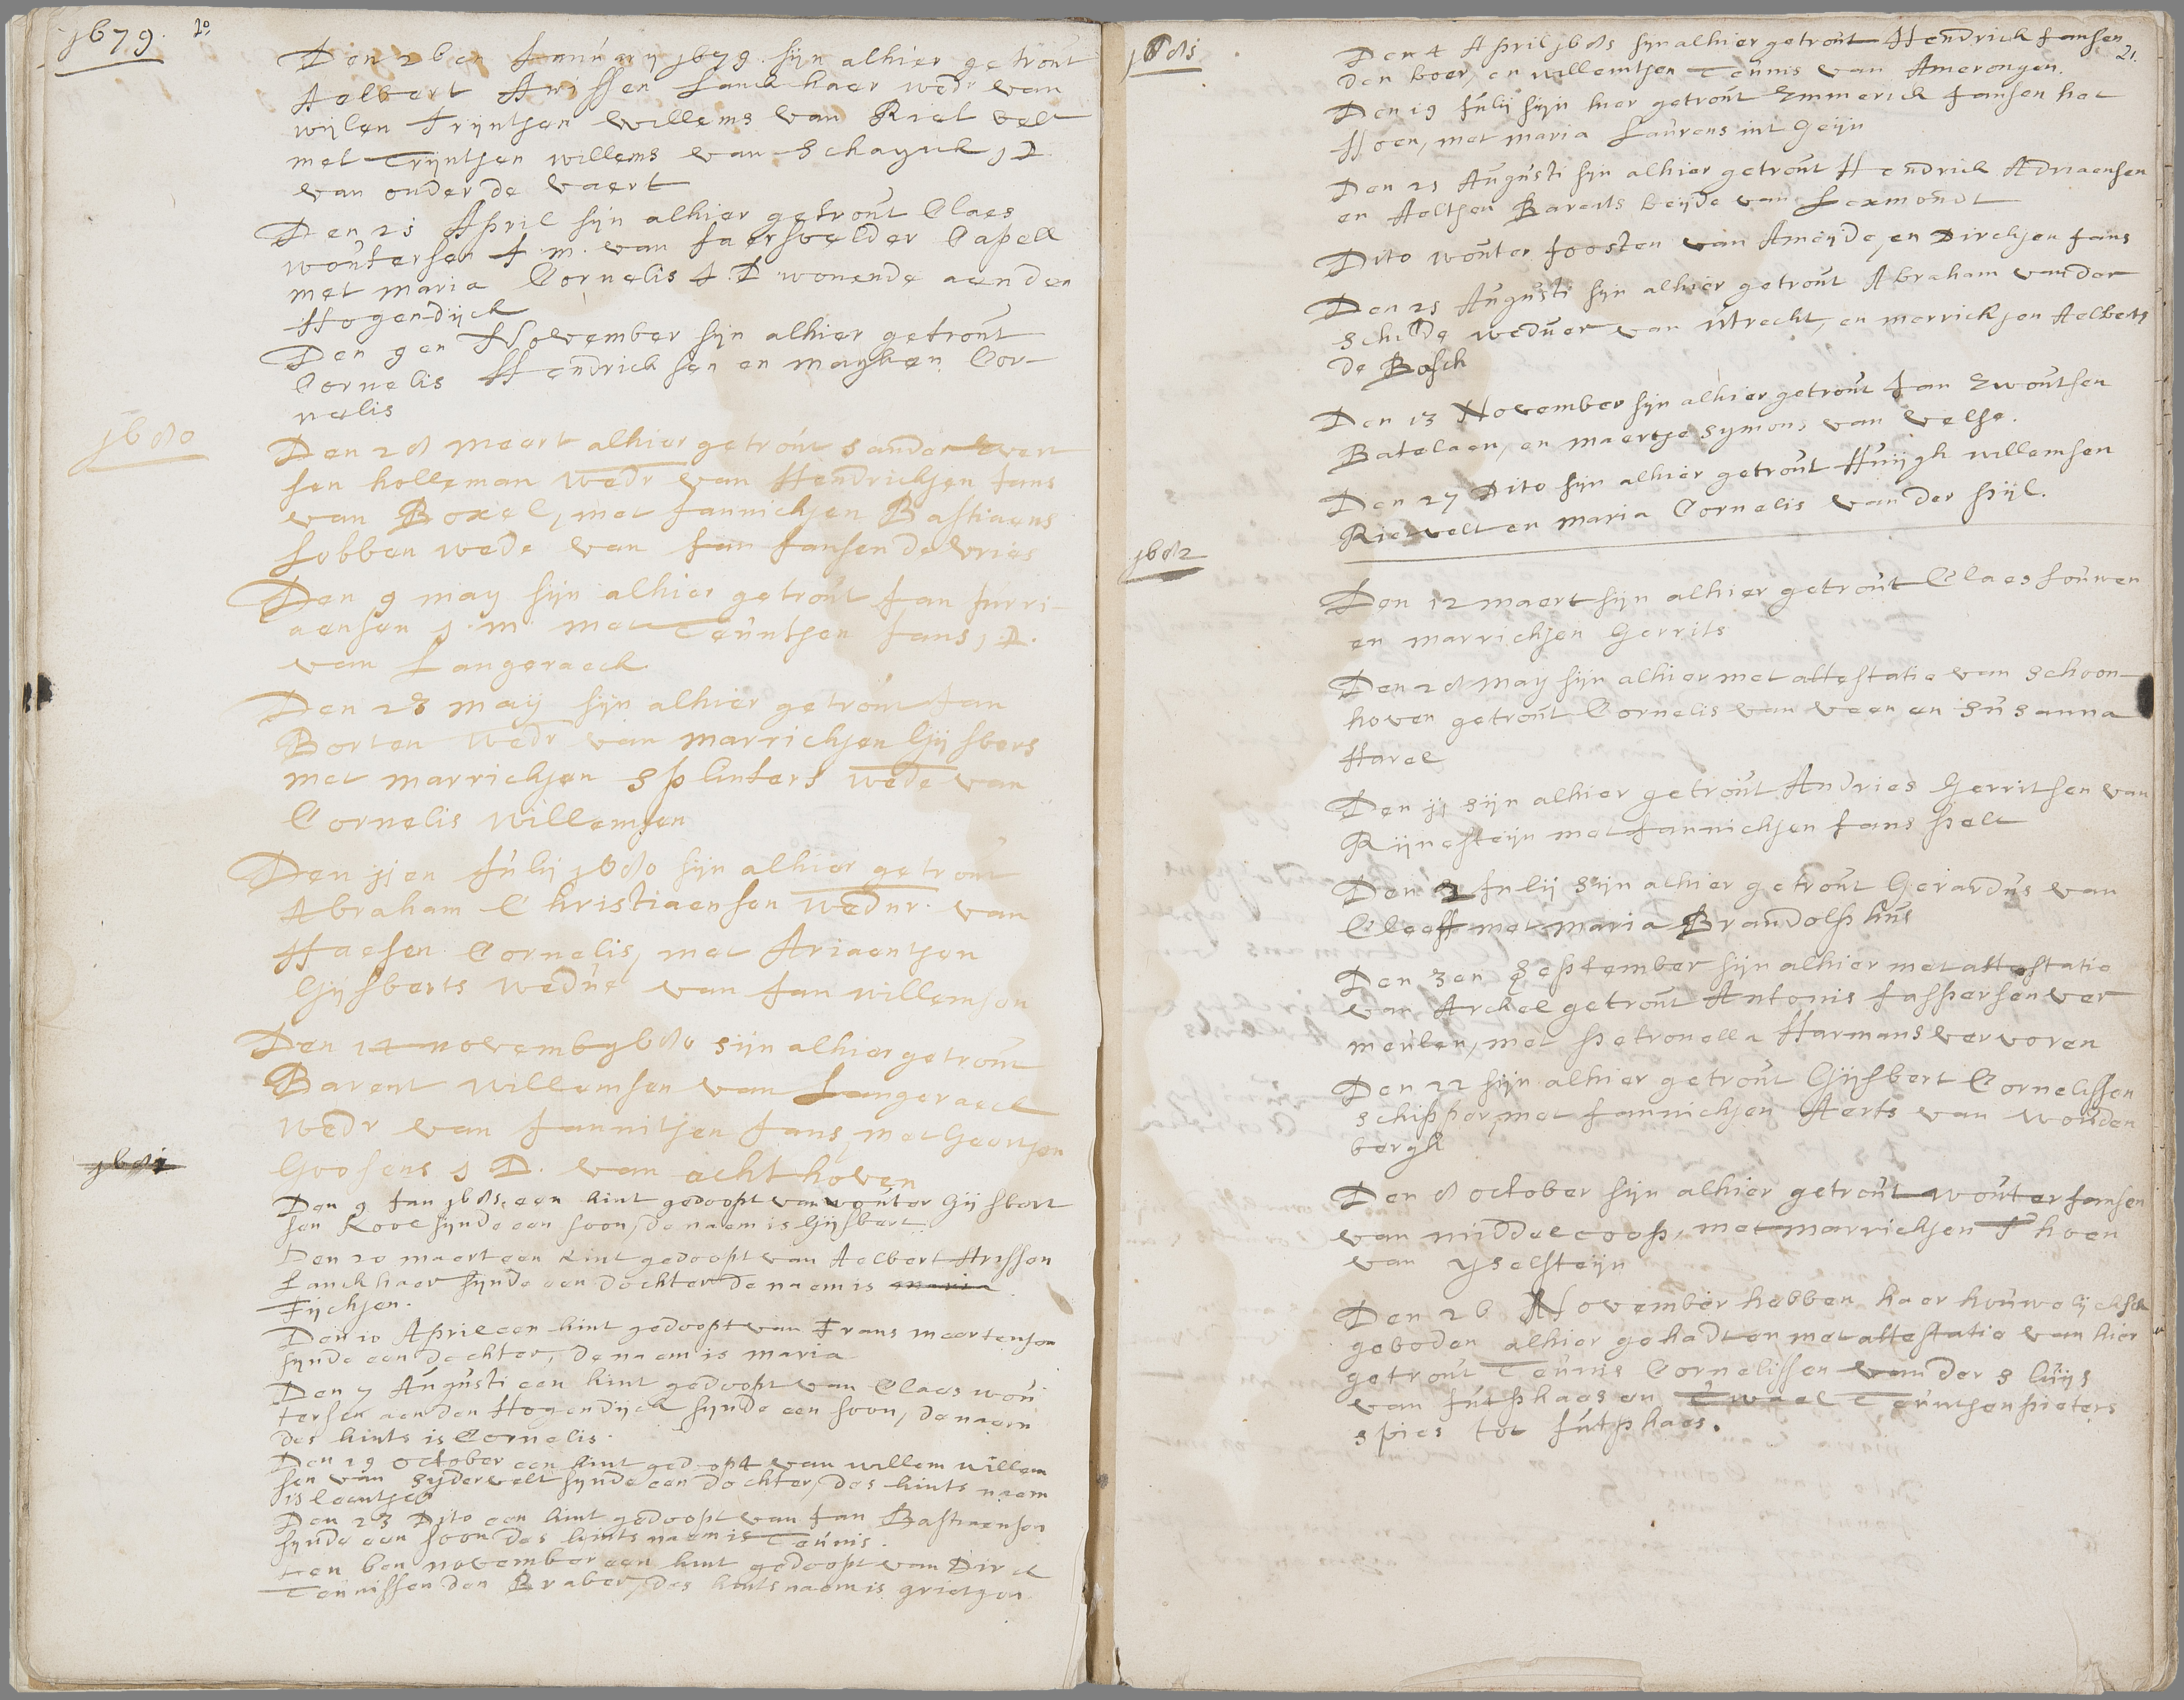 1679.
Den 26en January 1679. sijn alhier getrout
Aelbert Arissen Lanckhaer wedr van
wijlen Trijntjen Willems van Riet velt
met Trijntjen willems van Schayick j D
van onder de vaert
Den 21 April sijn alhier getrout Claes
woutersen J. m. van Jaersvelder Capell
met maria Cornelis J. D wonende aenden
Hogendijck
Den 9en November sijn alhier getrout
Cornelis Hendricksen en mayken Cor-
nelis
1680
Den 28 meert alhier getrout Sander Evert
sen holleman wedr van Hendrickjen Jans
van Boxel, met Jannichjen Bastiaens
Jobben wede van Jan Jansen de Vries
Den 9 may sijn alhier getrout Jan Jurri-
aensen j. m. met Teuntjen Jans, j. D.
van Langeraeck
Den 23 maij sijn alhier getrout Jan
Borten wedr van marrichjen Gijsbers
met marrichjen Splinters wede van
Cornelis Willemsen
Den 11en Julij 1680 sijn alhier getrout
Abraham Christiaensen Wednr. van
Haesen Cornelis, met Ariaentjen
Gijsberts wedue van Jan willemsen
Den 14 novemb 1680 sijn alhier getrout
Barent Willemsen van Langeraeck
wedr van Jannitjen Jans, met Geertjen
Goosens j D. van achthoven
1681
Den 9 Jan 1681. een kint gedoopt van wouter Gijsbert
sen Kool sijnde een soon, de naem is Gijsbert.
Den 20 maert een kint gedoopt van Aelbert Arissen
Lanckhaer sijnde een dochter de naem is maria
Fijchjen.
Den 10 April een kint gedoopt van Frans meertensen
sijnde een dochter, de naem is maria
Den 7 Augusti een kint gedoopt van Claes wou
tersen aenden Hogendijck sijnde een soon, de naem
des kints is Cornelis.
Den 19 october een kint gedopt van willem willem
sen van Sijdervelt sijnde een dochter, des kints naem
is leentjen
Den 23 Dito een kint gedoopt van Jan Bastiaensen
sijnde een soon des kints naem is Teunis.
Den 6en november een kint gedoopt van Dirck
Teunissen den Braber, des kints naem is grietjen
21.
1681
Den 4 April 1681 sijn alhier getrout Hendrick Jansen
den boer, en willemtjen Teunis van Amerongen.
Den 19 Julij sijn hier getrout Emmerick Jansen hot
Hoen, met maria Laurens int Geijn
Den 21 Augusti sijn alhier getrout Hendrick Adriaensen
en Aeltjen Barents beijde van Lexmondt
Dito wouter Joosten van Ameijde, en Dirckjen Jans
Den 25 Augusti sijn alhier getrout Abraham vander
Schilde weduer van utrecht, en merrickjen Aelberts
de Bosch
Den 13 November sijn alhier getrout Jan Ewoutsen
Batelaen, en maertje Symons van Velse.
Den 27 Dito sijn alhier getrout Huijgh willemsen
Rietvelt en maria Cornelis vander pijl.
1682
Den 12 maert sijn alhier getrout Claes Louwen
en marrichjen Gerrits
Den 28 maij sijn alhier met attestatie van Schoon-
hoven getrout Cornelis van veen en Susanna
Harel
Den 31 sijn alhier getrout Andries Gerritsen van
Rijnesteijn met Jannichjen Jans pelt
Den 2 Julij sijn alhier getrout Gerardus van
Cleeff met maria Brandolphus
Den 3en September sijn alhier met attestatie
van Arckel getrout Antonis Jaspersen ver
meulen, met petronella Harmans vervoren
Den 22 sijn alhier getrout Gijsbert Cornelissen
schipper, met Jannichjen Aerts van Wouden
bergh
Den 8 october sijn alhier getrout wouter Jansen
van middelcoop, met marrichjen T hoen
van yselsteijn
Den 26 November hebben haer houwelijckse
geboden alhier gehadt en met attestatie van hier
getrout Teunis Cornelissen vander Sluijs
van Jutphaes en Teuntjen pieters
spies tot Jutphaes.